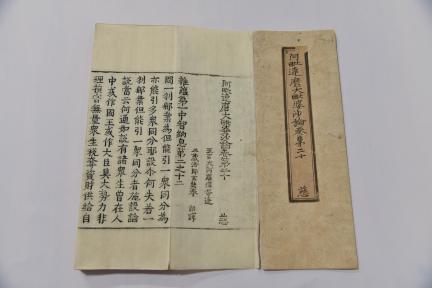 阿毗達磨大毗婆沙論卷第二十 慈
阿毗達磨大毗婆沙論卷第二十 慈
五百大阿羅漢等造
三藏法師玄奘奉 詔譯
雜蘊第一中智納息第二之十二
問一刹那業為但能引一衆同分為
亦能引多衆同分耶設尒何失若一
刹那業但能引一衆同分者施設論
說當云何通如說有諸衆生曾在人
中或作國王或作大臣具大勢力非
理損害無量衆生稅奪資財供給自